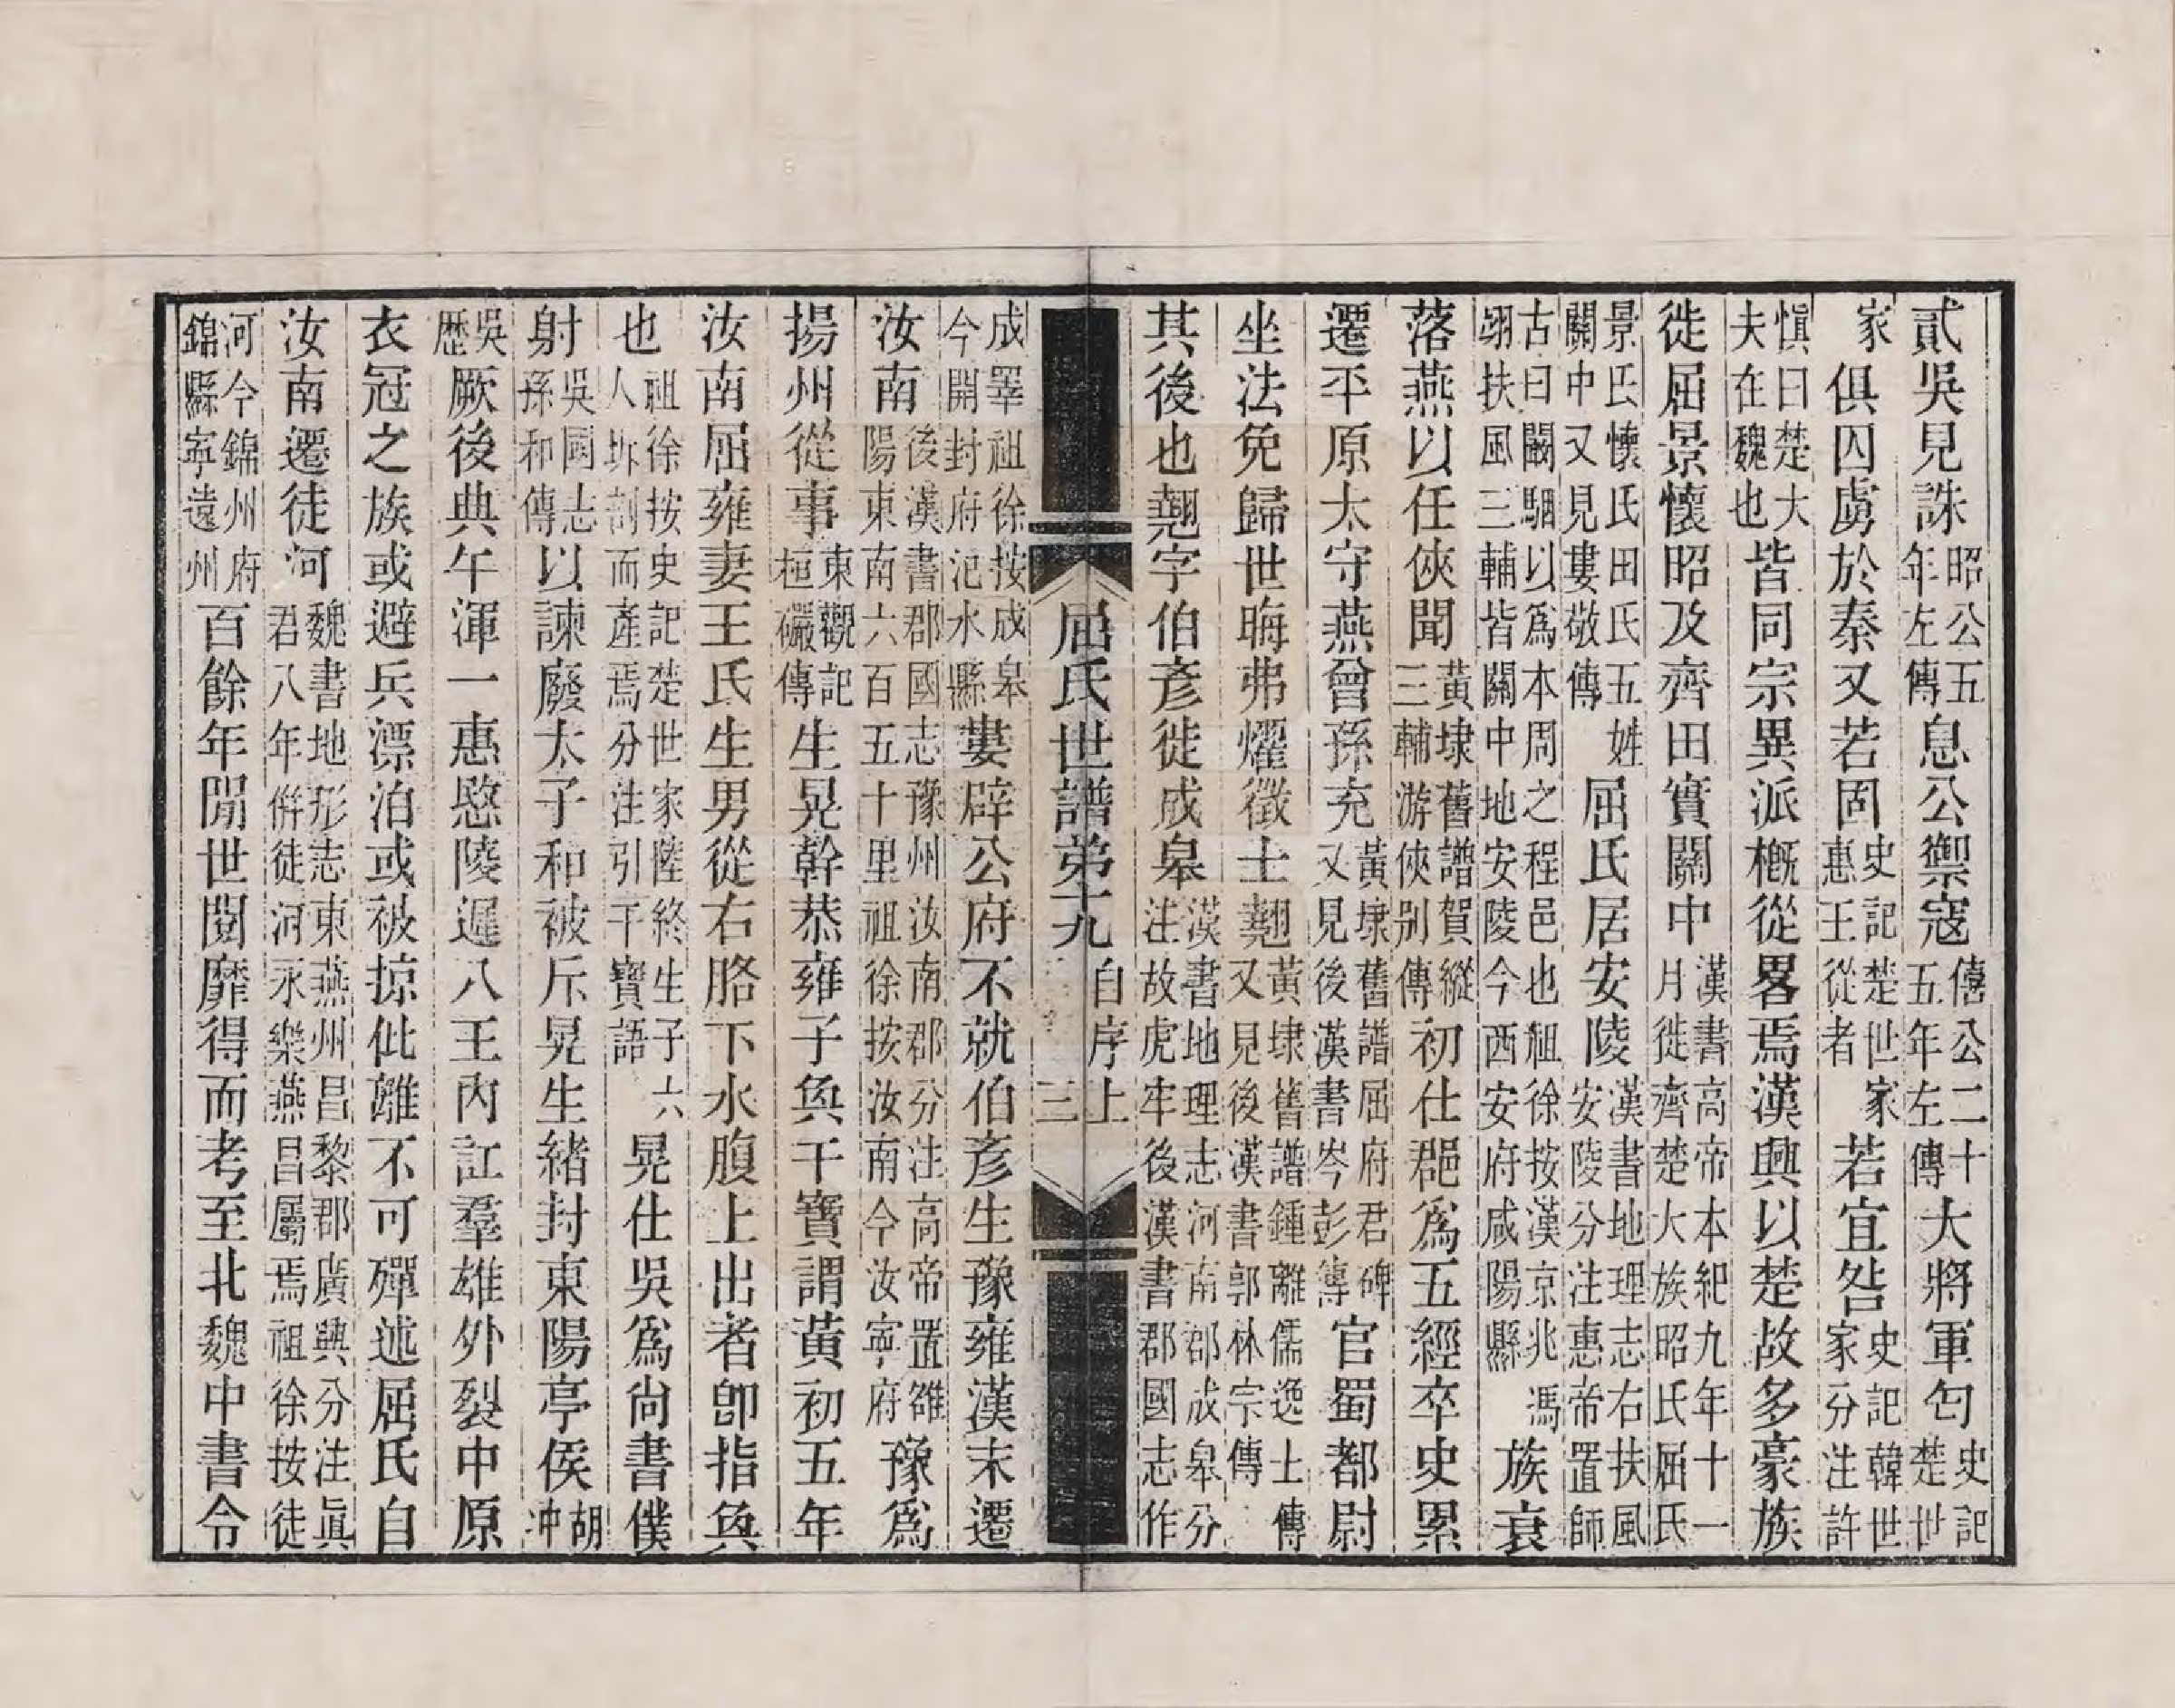 貳吳見誅昭公五年左傳息公禦寇僖公二十五年左傳大將軍匄史記楚世
家俱囚虜於秦又若固史記楚世家惠王從者若宜咎史記韓世家分注許
愼曰楚大夫在魏也皆同宗異派槪從畧焉漢興以楚故多豪族
徙屈景懷昭及齊田實關中漢書高帝本紀九年十一月徙齊楚大族昭氏屈氏
景氏懷氏田氏五姓關中又見婁敬傳屈氏居安陵漢書地理志右扶風安陵分注惠帝置師
古曰闞駰以爲本周之程邑也祖徐按漢京兆馮翊扶風三輔皆關中地安陵今西安府咸陽縣族衰
落燕以任俠聞黃埭舊譜賀縱三輔游俠別傳初仕郡爲五經卒史累
遷平原太守燕曾孫充黃埭舊譜屈府君碑又見後漢書岑彭傳官蜀都尉
坐法免歸世晦弗燿徵士翹黃埭舊譜鍾離儒逸士傳又見後漢書郭林宗傳
其後也翹字伯彥徙成皋漢書地理志河南郡成皋分注故虎牢後漢書郡國志作
屈氏世譜弟十九 自序上 三
成睪祖徐按成皋今開封府汜水縣婁辟公府不就伯彥生豫雍漢末遷
汝南後漢書郡國志豫州汝南郡分注高帝置雒陽東南六百五十里祖徐按汝南今汝寧府豫爲
揚州從事東觀記桓礹傳生晃幹恭雍子奐干寶謂黃初五年
汝南屈雍妻王氏生男從右胳下水腹上出者卽指奐
也祖徐按史記楚世家陸終生子六人坼剖而產焉分注引干寶語晃仕吳爲尙書僕
射吳國志孫和傳以諫廢太子和被斥晃生緒封東陽亭侯胡沖
吳歷厥後典午渾一惠愍陵遲八王內訌羣雄外裂中原
衣冠之族或避兵漂泊或被掠仳離不可殫述屈氏自
汝南遷徒河魏書地形志東燕州昌黎郡廣興分注眞君八年倂徒河永樂燕昌屬焉祖徐按徒
河今錦州府錦縣寧遠州百餘年閒世閱靡得而考至北魏中書令